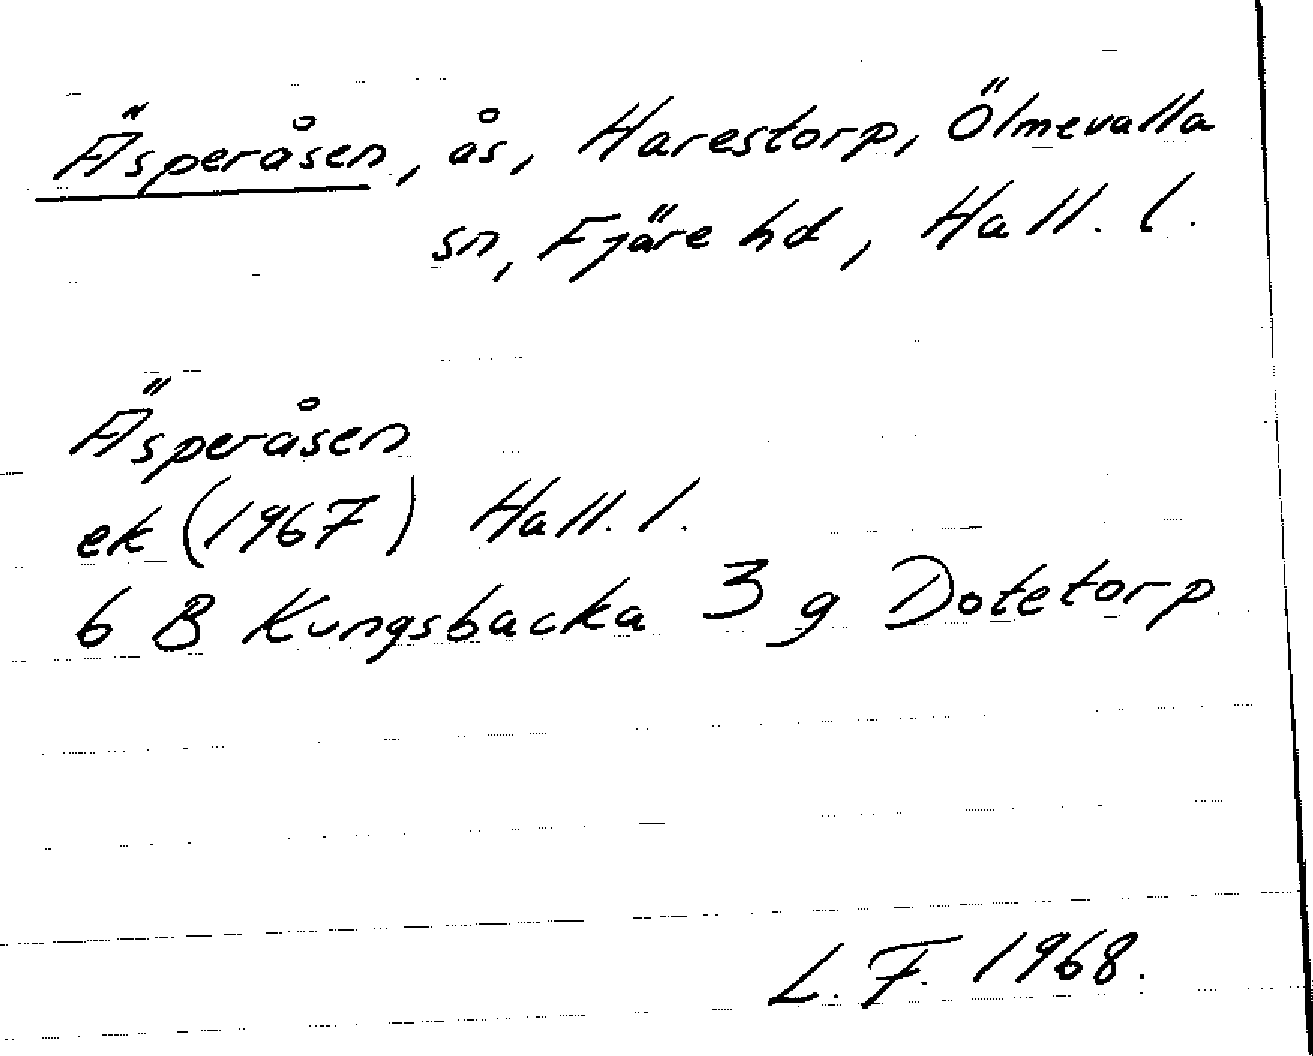 Äsperåsen, ås, Harestorp, Ölmevalla
sn, Fjäre hd, Hall. l.
Äsperåsen
ek (1967) Hall. l.
6 B Kungsbacka 3 g Dotetorp
L. F. 1968.